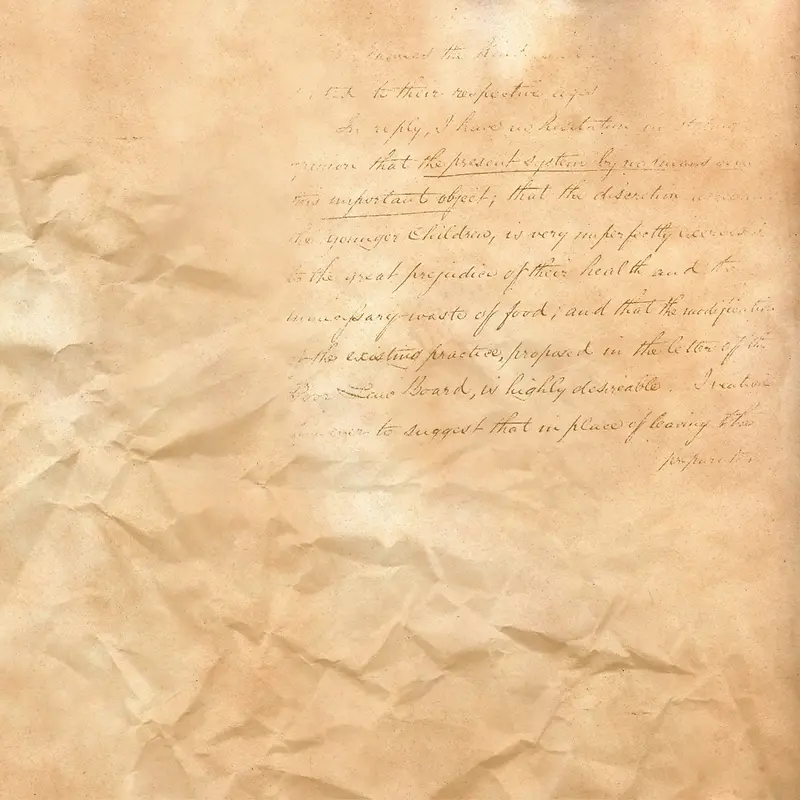 the
to their respective ages
In reply, I have no hesitation in
opinion that the present system by no means
this important object; that the discretion
the younger Children, is very imperfectly exercised
to the great prejudice of their health and
waste of food; and that the modification
the existing practice, proposed in the letter of the
Poor Law Board, is highly desireable. I
however to suggest that in place of leaving the